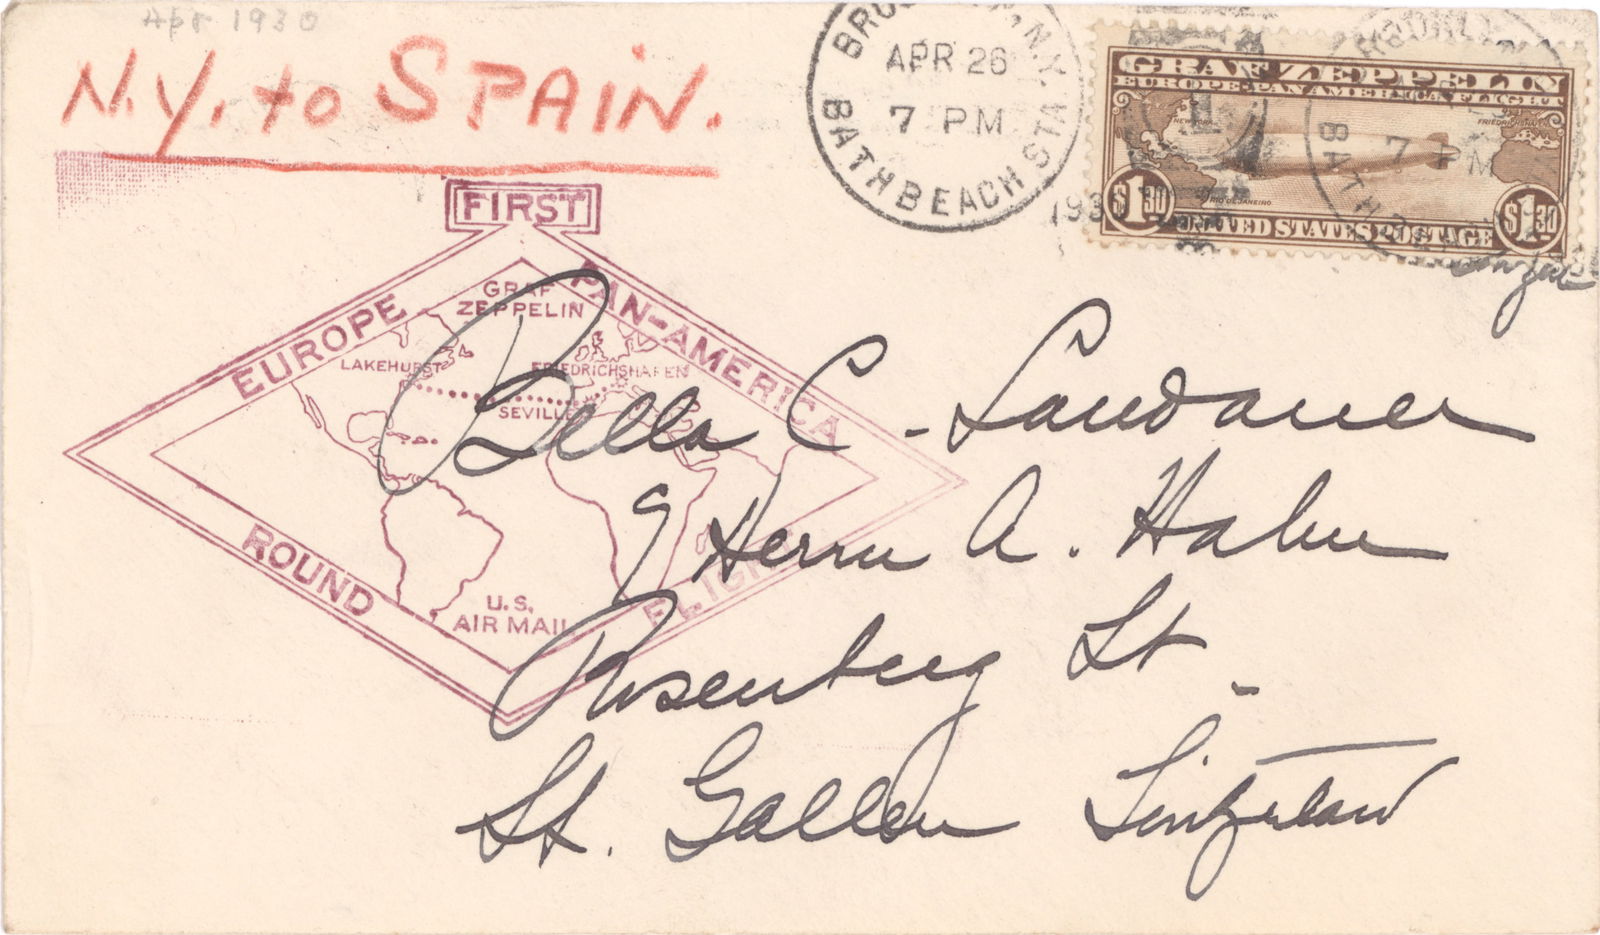 Apr 1930
N.Y. to SPAIN.
BROOKLYN, N.Y.
APR 26
7 PM
1930
BATH BEACH STA.
GRAF ZEPPELIN
EUROPE-PAN AMERICA FLIGHT
NEW YORK
FRIEDRICHSHAFEN
RIO DE JANEIRO
$1.30 UNITED STATES POSTAGE $1.30
7 PM
BATH BEACH
FIRST
EUROPE PAN-AMERICA
GRAF
ZEPPELIN
LAKEHURST FRIEDRICHSHAFEN
SEVILLE
ROUND FLIGHT
U.S.
AIR MAIL
Bella C. Landauer
% Herrn A. Hahn
Rosenberg St.
St. Gallen Switzerland